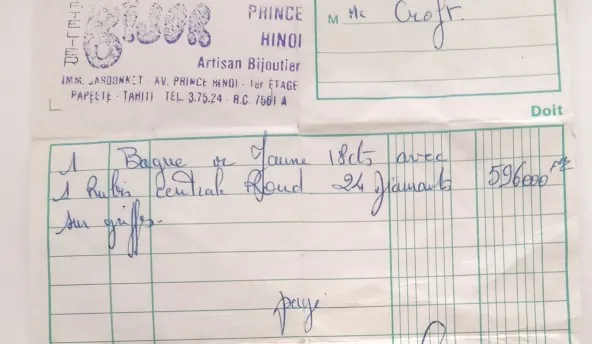 ATELIER BIJOUX
PRINCE
HINOI
Artisan Bijoutier
IMM. JARDONNET - AV. PRINCE HINOI - 1er ÉTAGE
PAPEETE - TAHITI TEL. 3.75.24 - R.C. 7561 A
M Mc Croft.
Doit
1 Bague or Jaune 18cts avec
1 Rubis centrale Rond. 24 Diamants 596000
sur griffes.
payé